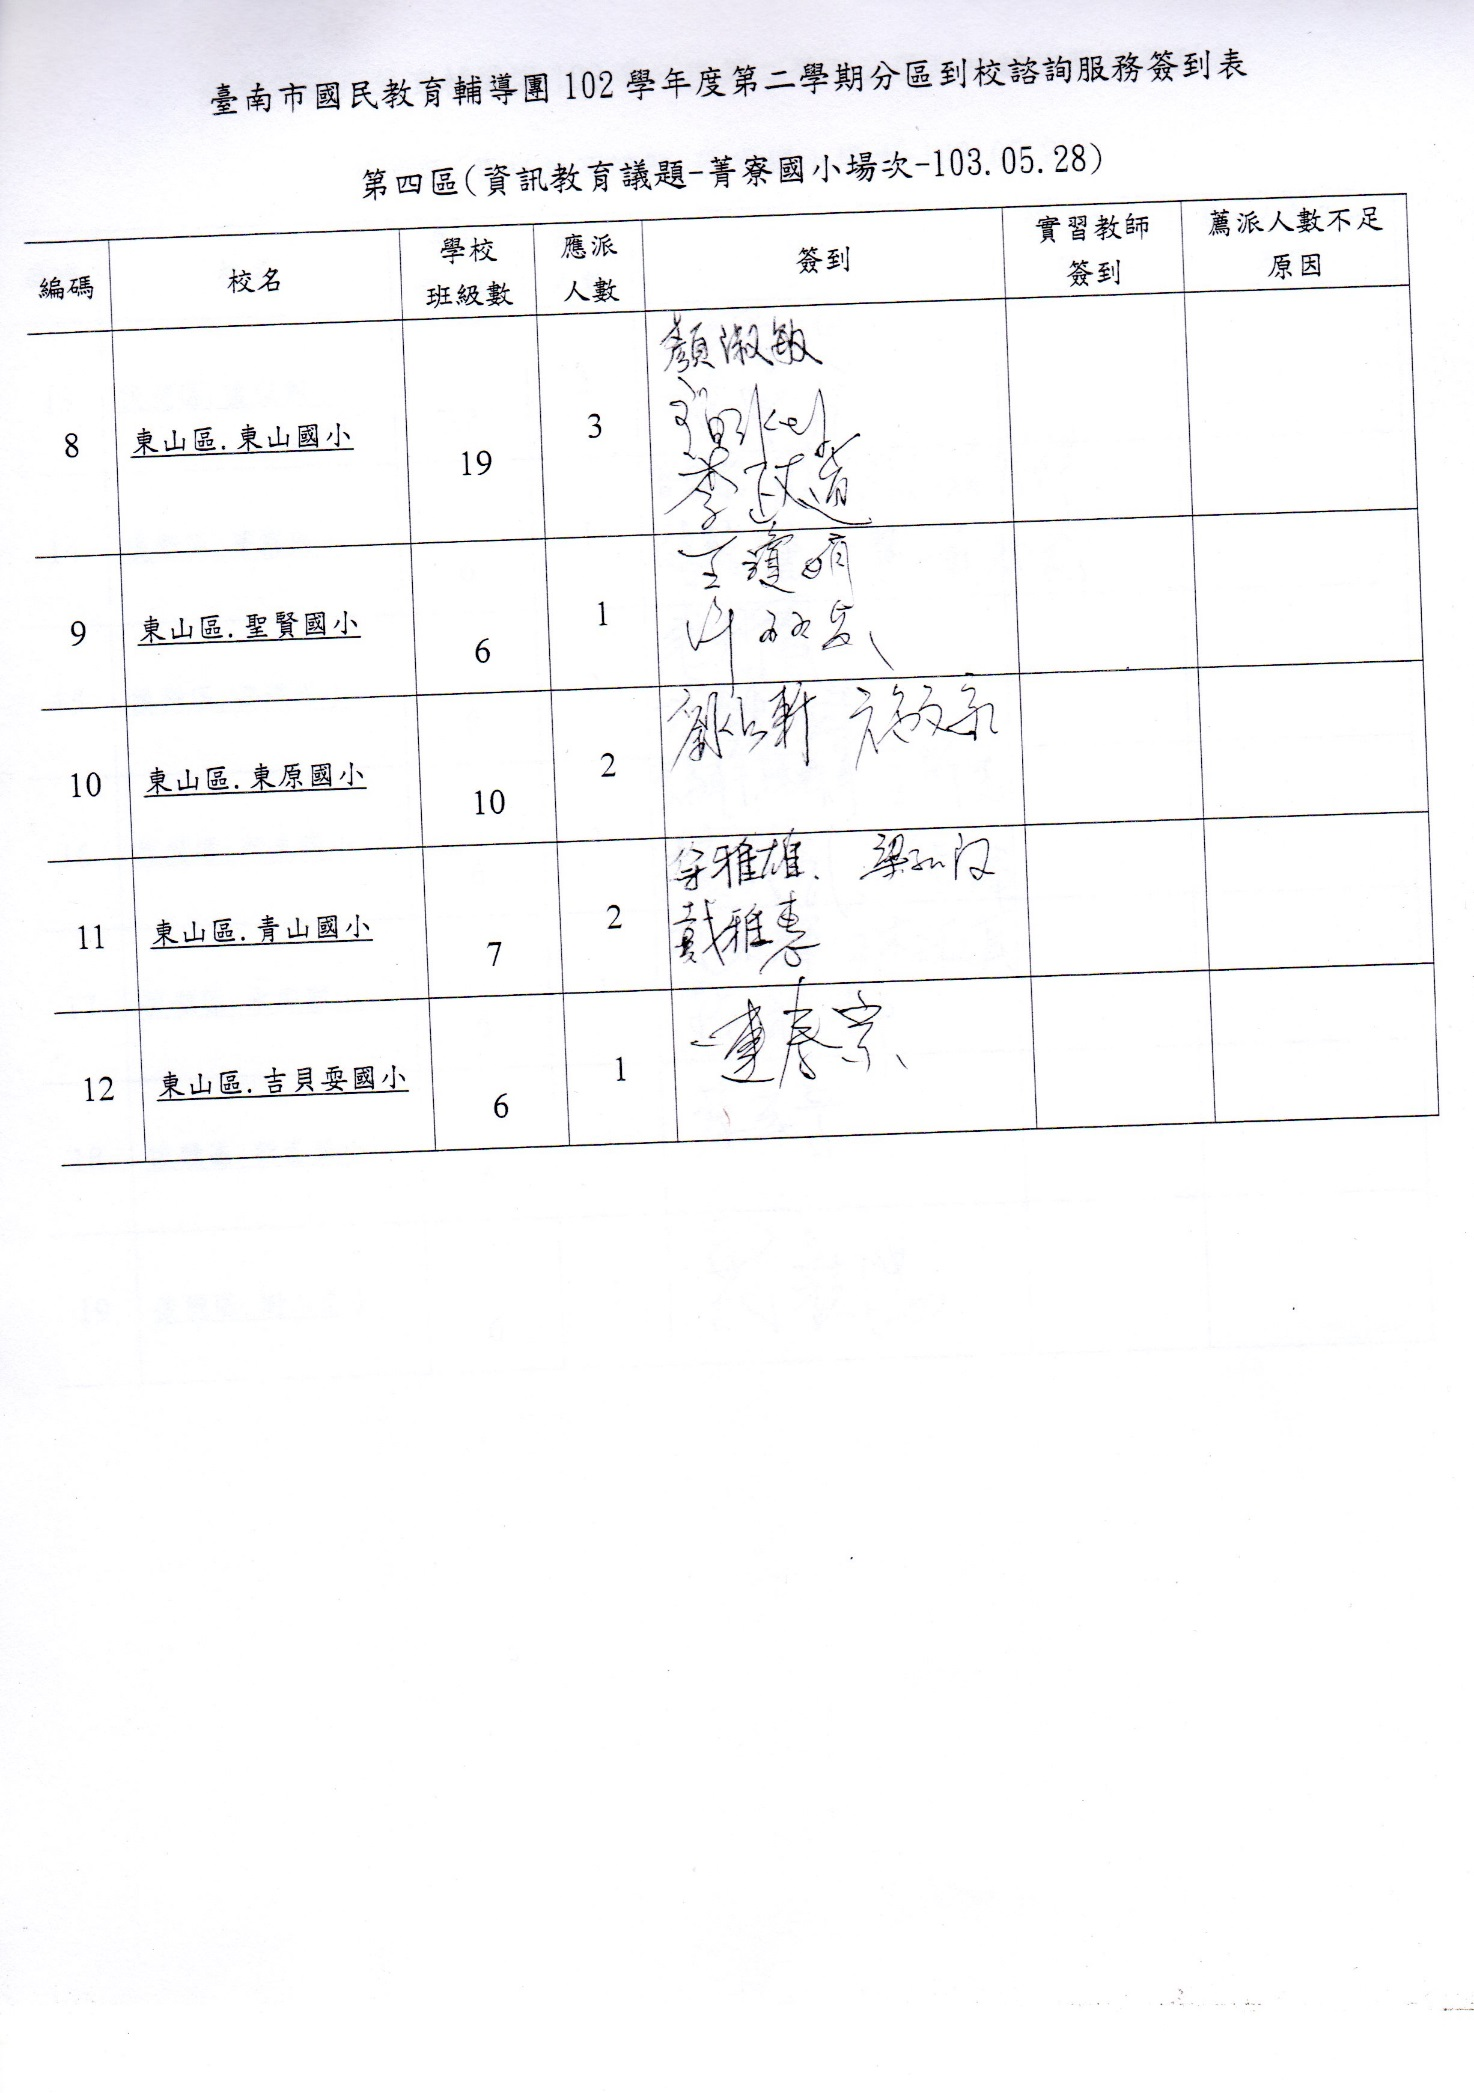 臺南市國民教育輔導團 102 學年度第二學期分區到校諮詢服務簽到表
第四區(資訊教育議題-菁寮國小場次-103.05.28)
編碼 校名 學校班級數 應派人數 簽到 實習教師簽到 薦派人數不足原因
8 東山區.東山國小 19 3 顏淑敏
李政道
9 東山區.聖賢國小 6 1 王瓊娟
許
10 東山區.東原國小 10 2 軒
11 東山區.青山國小 7 2 雅雄、梁
戴雅惠
12 東山區.吉貝耍國小 6 1 連春宗